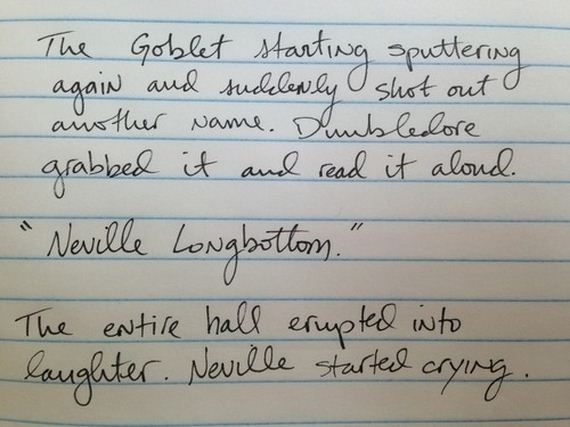 The Goblet starting sputtering
again and suddenly shot out
another name. Dumbledore
grabbed it and read it aloud.
"Neville Longbottom."
The entire hall erupted into
laughter. Neville started crying.